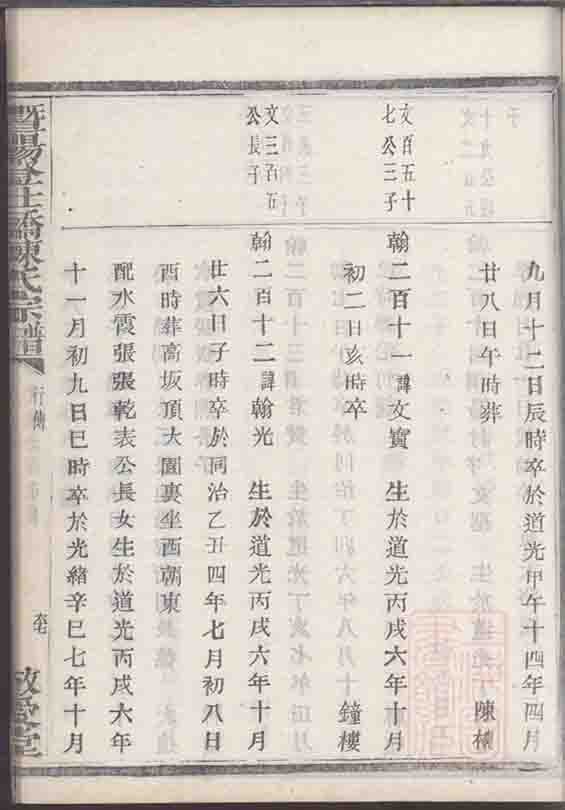 九月十二日辰時卒於道光甲午十四年四月
廿八日午時葬 陳
文百五十
七公三子
翰二百十一諱文寳 生於道光丙戌六年十月
初二日亥時卒 鐘樓
文三百五
公長子
翰二百十二諱翰光 生於道光丙戌六年十月
廿六日子時卒於同治乙丑四年七月初八日
酉時葬高坂頂大園裏坐西朝東
配水霞張張乾表公長女生於道光丙戌六年
十一月初九日巳時卒於光緒辛巳七年十月
暨陽 橋陳氏宗譜
行傳
敬愛堂